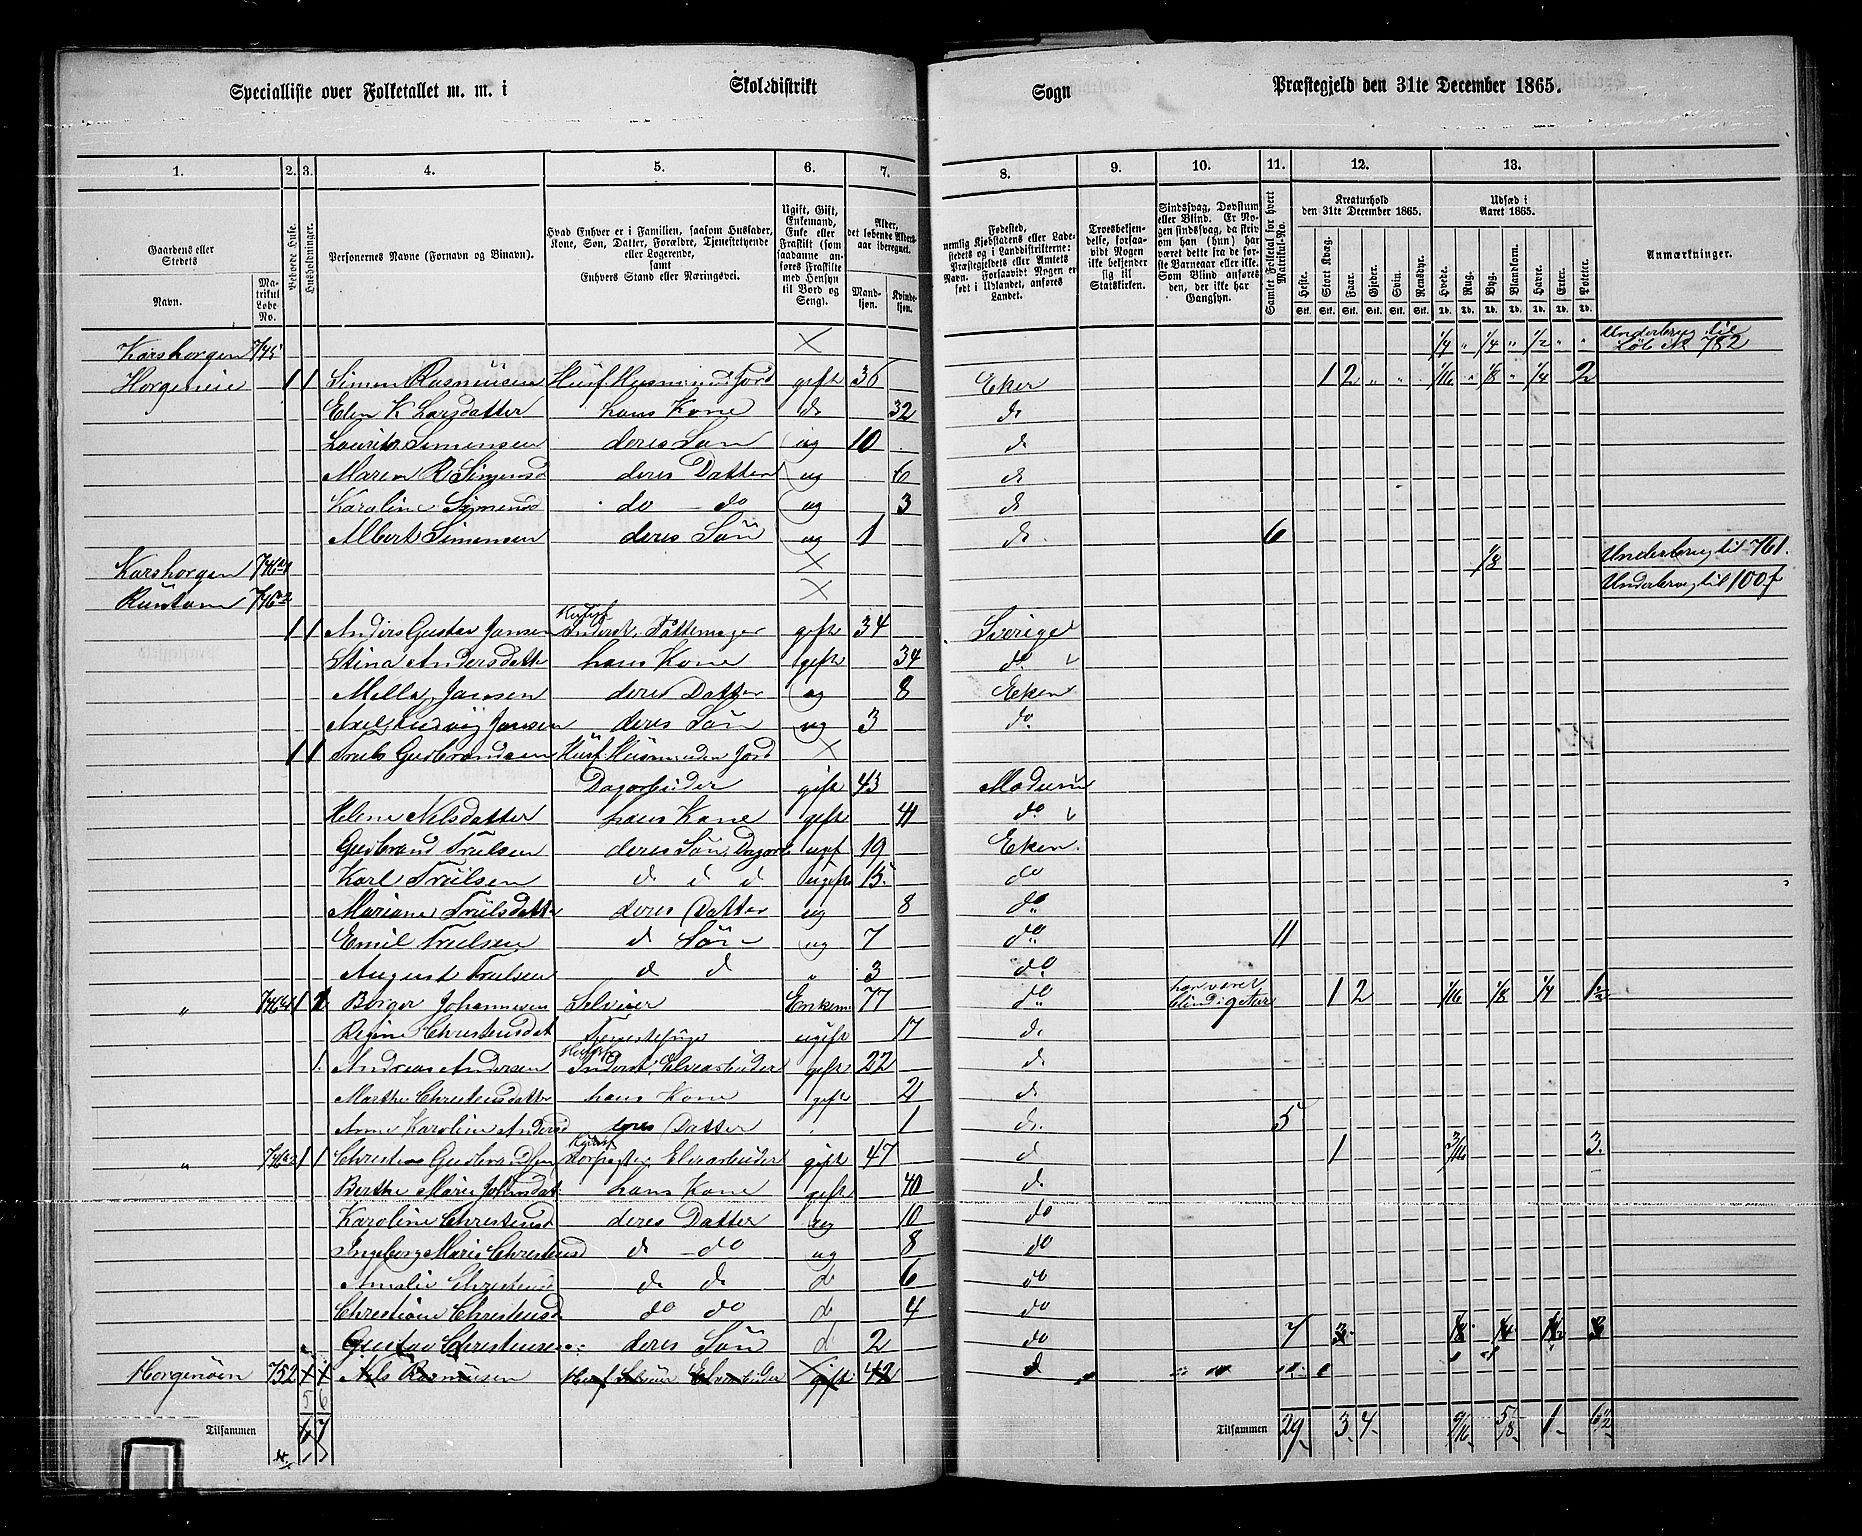 Specialliste over Folketallet m. m. i Skoledistrikt Sogn Præstegjeld den 31te December 1865.
1. 2. 3. 4. 5. 6. 7. 8. 9. 10. 11. 12. 13.
Gaardens eller Stedets Navn. Matrikul Løbe-No.
Beboede Huse.
Husholdninger.
Personernes Navne (Fornavn og Binavn).
Hvad Enhver er i Familien, saasom Husfader, Kone, Søn, Datter, Forældre, Tjenestetyende eller Logerende, samt Enhvers Stand eller Næringsvei.
Ugift, Gift, Enkemand, Enke eller Fraskilt (som saadanne anføres Fraskilte med Hensyn til Bord og Seng).
Alder, det løbende Aldersaar iberegnet. Mandkjøn. Kvindekjøn.
Fødested, nemlig Kjøbstadens eller Ladestedets og i Landdistrikterne: Præstegjeldets eller Amtets Navn. Forsaavidt Nogen er født i Udlandet, anføres Landet.
Troesbekjendelse, forsaavidt Nogen ikke bekjender sig til Statskirken.
Sindssvag, Døvstum eller Blind. Er Nogen sindssvag, da striv om han (hun) har været dette fra de første Barneaar eller ikke. Som Blind anføres den, der ikke har Gangsyn.
Samlet Folketal for hvert Matrikul-No.
Kreaturhold den 31te December 1865.
Heste. Stort Kvæg. Faar. Gjeder. Svin. Rensdyr.
Udsæd i Aaret 1865.
Hvede. Rug. Byg. Blandkorn. Havre. Erter. Poteter.
Anmærkninger.
Karshorgen 745 × 1/4 " 1/4 " 1/2 " " Underbrug til Løb № 782
Horgeneie 1 1 Simon Rasmusen Husf Husmand Jord gift 36 Eker 1 2 " " 1/16 " 1/8 " 1/4 2
Elen K Larsdatter hans Kone do 32 do
Laurits Simensen deres Søn ug 10 do
Maren R Simensd deres Datter ug 6 do
Karoline Simensd do do ug 3 do
Albert Simensen deres Søn ug 1 do 6
Karshorgen 746a1 × 1/8 Underbrug til 761.
Runtom 746a2 × Underbrug til 1007
1 1 Anders Gustav Jansen Inderst, Pottemager gift 34 Sverige
Stina Andersdatter hans Kone gift 34 do
Milla Jansen deres Datter ug 8 Eker
Axel Ludvig Jansen deres Søn ug 3 do
1 1 Truls Gudbrandsen Husf. Husmand uden Jord ×
Dagarbeider gift 43 Modum
Helene Nilsdatter hans Kone gift 41 do
Gudbrand Trulsen deres Søn, Dagarb ugift 19 Eker
Karl Trulsen d d d ugift 15 do
Mariane Trulsdatter deres Datter ug 8 do
Emil Trulsen d Søn ug 7 do 11
August Trulsen d d " 3 do
" 746 1 1 Børger Johannesen Selveier Enkem 77 do 1 2 1/16 1/8 1/4 1 1/2
Regine Christensdat Tjenestepige ugift 17 do
1. Andreas Andersen Inderst, Elvearbeider gift 22 do
Marthe Christensdatter hans Kone gift 21 do
Anne Karoline Andersd deres Datter 1 do 5
" 746 1 1 Christen Gudbrandsen Forpagter, Elvearbeider gift 47 d 1 3/16 3
Berthe Marie Johnsdat hans Kone gift 40 d
Karoline Christensd deres Datter ug 10 do
Ingeborg Marie Christensd d do ug 8 do
Amalie Christensd d d d 6 do
Christiane Christensd do do d 4 do
Gustav Christensen deres Søn d 2 do 7
Horgenøen 752 1 1 Nils Rasmusen Husf Selveier Elvearbeider gift 42 d
5 6
Tilsammen 6 7 Tilsammen 29 3 4 9/16 5/8 1 6 1/2